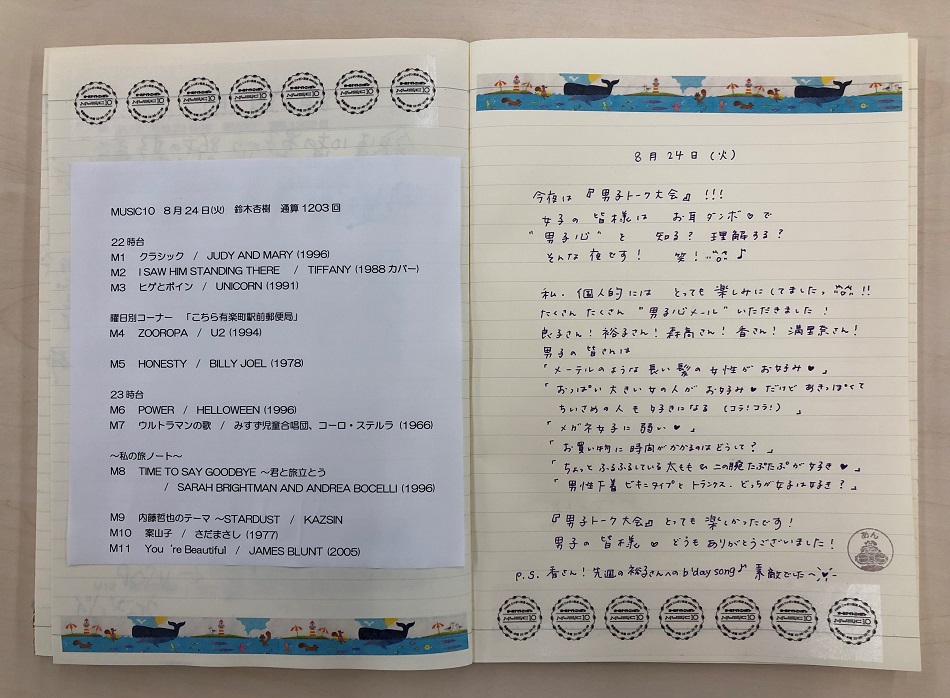 MUSIC10
MUSIC10
MUSIC10
MUSIC10
MUSIC10
MUSIC10
MUSIC10
MUSIC10 8月24日(火) 鈴木杏樹 通算1203回
22時台
M1 クラシック / JUDY AND MARY (1996)
M2 I SAW HIM STANDING THERE / TIFFANY (1988カバー)
M3 ヒゲとボイン / UNICORN (1991)
曜日別コーナー 「こちら有楽町駅前郵便局」
M4 ZOOROPA / U2 (1994)
M5 HONESTY / BILLY JOEL (1978)
23時台
M6 POWER / HELLOWEEN (1996)
M7 ウルトラマンの歌 / みすず児童合唱団、コーロ・ステルラ (1966)
～私の旅ノート～
M8 TIME TO SAY GOODBYE ～君と旅立とう
/ SARAH BRIGHTMAN AND ANDREA BOCELLI (1996)
M9 内藤哲也のテーマ ～STARDUST / KAZSIN
M10 案山子 / さだまさし (1977)
M11 You 're Beautiful / JAMES BLUNT (2005)
8月24日(火)
今夜は『男子トーク大会』!!!
女子の皆様は お耳ダンボ♡で
"男子心"を 知る? 理解する?
そんな夜です! 笑! ♪
私、個人的には とっても楽しみにしてました。!!
たくさん たくさん "男子心メール" いただきました!
良子さん! 裕子さん! 森高さん! 香さん! 満里奈さん!
男子の皆さんは
「メーテルのような長い髪の女性がお好み♥」
「おっぱい大きい女の人がお好み♥だけどあきっぽくて
ちいさめの人も好きになる (コラ!コラ!) 」
「メガネ女子に弱い♥」
「お買い物に時間がかかるのはどうして?」
「ちょっとふるふるしている太もも & 二の腕たぷたぷが好き♥」
「男性下着 ビキニタイプとトランクス、どっちが女子は好き?」
『男子トーク大会』とっても楽しかったです!
男子の皆様♥どうもありがとうございました!
あん
P.S. 香さん! 先週の裕子さんへのb'day song♪ 素敵でした～
MUSIC10
MUSIC10
MUSIC10
MUSIC10
MUSIC10
MUSIC10
MUSIC10